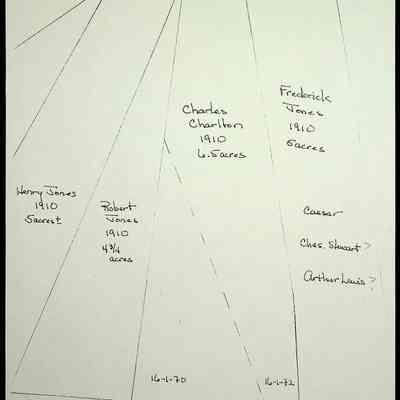 Frederick
Jones
1910
5 acres
Charles
Charlton
1910
6.5 acres
Henry Jones
1910
5 acres ±
Robert
Jones
1910
4 3/4
acres
Caesar
Chas. Stewart ?
Arthur Lewis ?
16-1-70
16-1-72